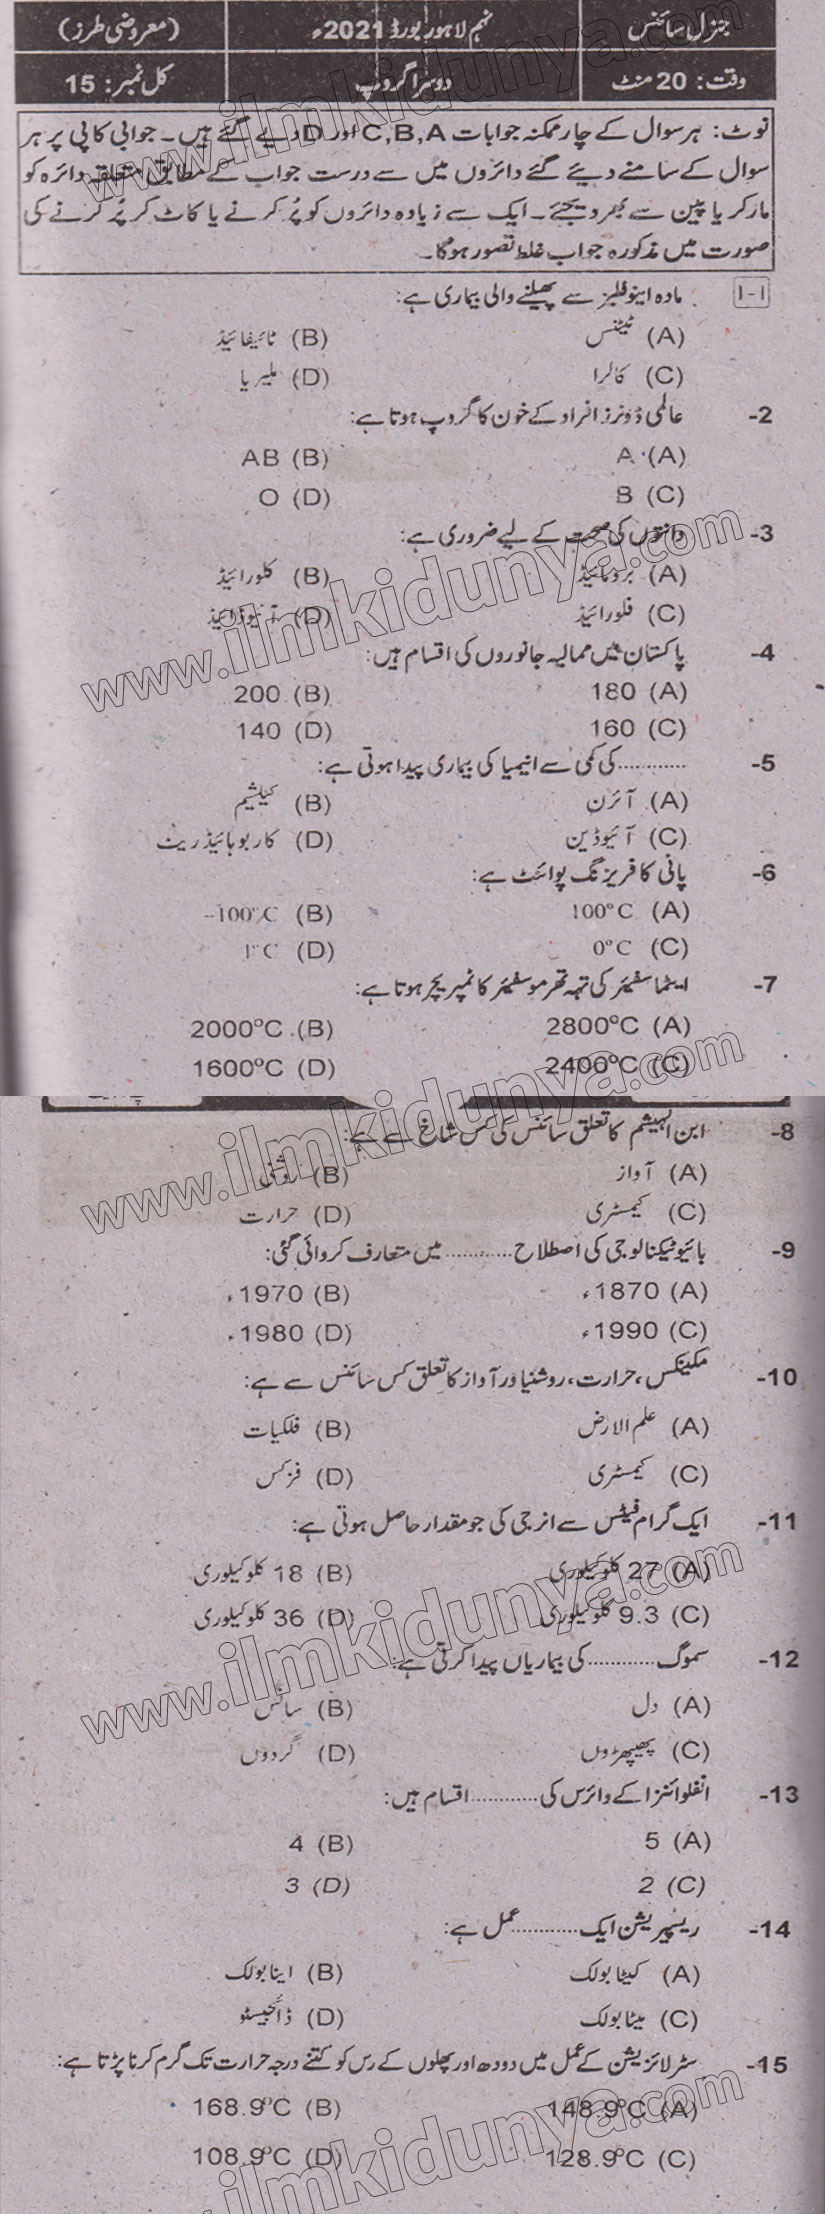 جنرل سائنس نہم لاہور بورڈ 2021ء (معروضی طرز)
وقت: 20 منٹ دوسرا گروپ کل نمبر: 15
نوٹ: ہر سوال کے چار ممکنہ جوابات C,B,A اور D دیے گئے ہیں۔ جوابی کاپی پر ہر
سوال کے سامنے دیئے گئے دائروں میں سے درست جواب کے مطابق متعلقہ دائرہ کو
مارکر یا پین سے بھر دیجئے۔ ایک سے زیادہ دائروں کو پُر کرنے یا کاٹ کر پُر کرنے کی
صورت میں مذکورہ جواب غلط تصور ہوگا۔
1-1 مادہ اینوفلیز سے پھیلنے والی بیماری ہے:
(A) ٹیٹنس (B) ٹائیفائیڈ
(C) کالرا (D) ملیریا
2- عالمی ڈونرز افراد کے خون کا گروپ ہوتا ہے:
(A) A (B) AB
(C) B (D) O
3- دانتوں کی صحت کے لیے ضروری ہے:
(A) برومائیڈ (B) کلورائیڈ
(C) فلورائیڈ (D) آئیوڈائیڈ
4- پاکستان میں ممالیہ جانوروں کی اقسام ہیں:
(A) 180 (B) 200
(C) 160 (D) 140
5- ............ کی کمی سے انیمیا کی بیماری پیدا ہوتی ہے:
(A) آئرن (B) کیلشیم
(C) آئیوڈین (D) کاربوہائیڈریٹ
6- پانی کا فریزنگ پوائنٹ ہے:
(A) 100°C (B) -100°C
(C) 0°C (D) 1°C
7- ایٹماسفیئر کی تہہ تھرموسفیئر کا ٹمپریچر ہوتا ہے:
(A) 2800°C (B) 2000°C
(C) 2400°C (D) 1600°C
8- ابن الہیشم کا تعلق سائنس کی کس شاخ سے ہے:
(A) آواز (B) روشنی
(C) کیمسٹری (D) حرارت
9- بائیوٹیکنالوجی کی اصطلاح ............ میں متعارف کروائی گئی:
(A) 1870ء (B) 1970ء
(C) 1990ء (D) 1980ء
10- مکینکس، حرارت، روشنیاور آواز کا تعلق کس سائنس سے ہے:
(A) علم الارض (B) فلکیات
(C) کیمسٹری (D) فزکس
11- ایک گرام فیٹس سے انرجی کی جو مقدار حاصل ہوتی ہے:
(A) 27 کلو کیلوری (B) 18 کلو کیلوری
(C) 9.3 کلو کیلوری (D) 36 کلو کیلوری
12- سموگ ............ کی بیماریاں پیدا کرتی ہے:
(A) دل (B) سانس
(C) پھیپھڑوں (D) گردوں
13- انفلوائنزا کے وائرس کی ............ اقسام ہیں:
(A) 5 (B) 4
(C) 2 (D) 3
14- ریسپیریشن ایک ............ عمل ہے:
(A) کیٹابولک (B) اینابولک
(C) میٹابولک (D) ڈائجیسٹو
15- سٹرلائزیشن کے عمل میں دودھ اور پھلوں کے رس کو کتنے درجہ حرارت تک گرم کرنا پڑتا ہے:
(A) 148.9°C (B) 168.9°C
(C) 128.9°C (D) 108.9°C
www.ilmkidunya.com
www.ilmkidunya.com
www.ilmkidunya.com
www.ilmkidunya.com
www.ilmkidunya.com